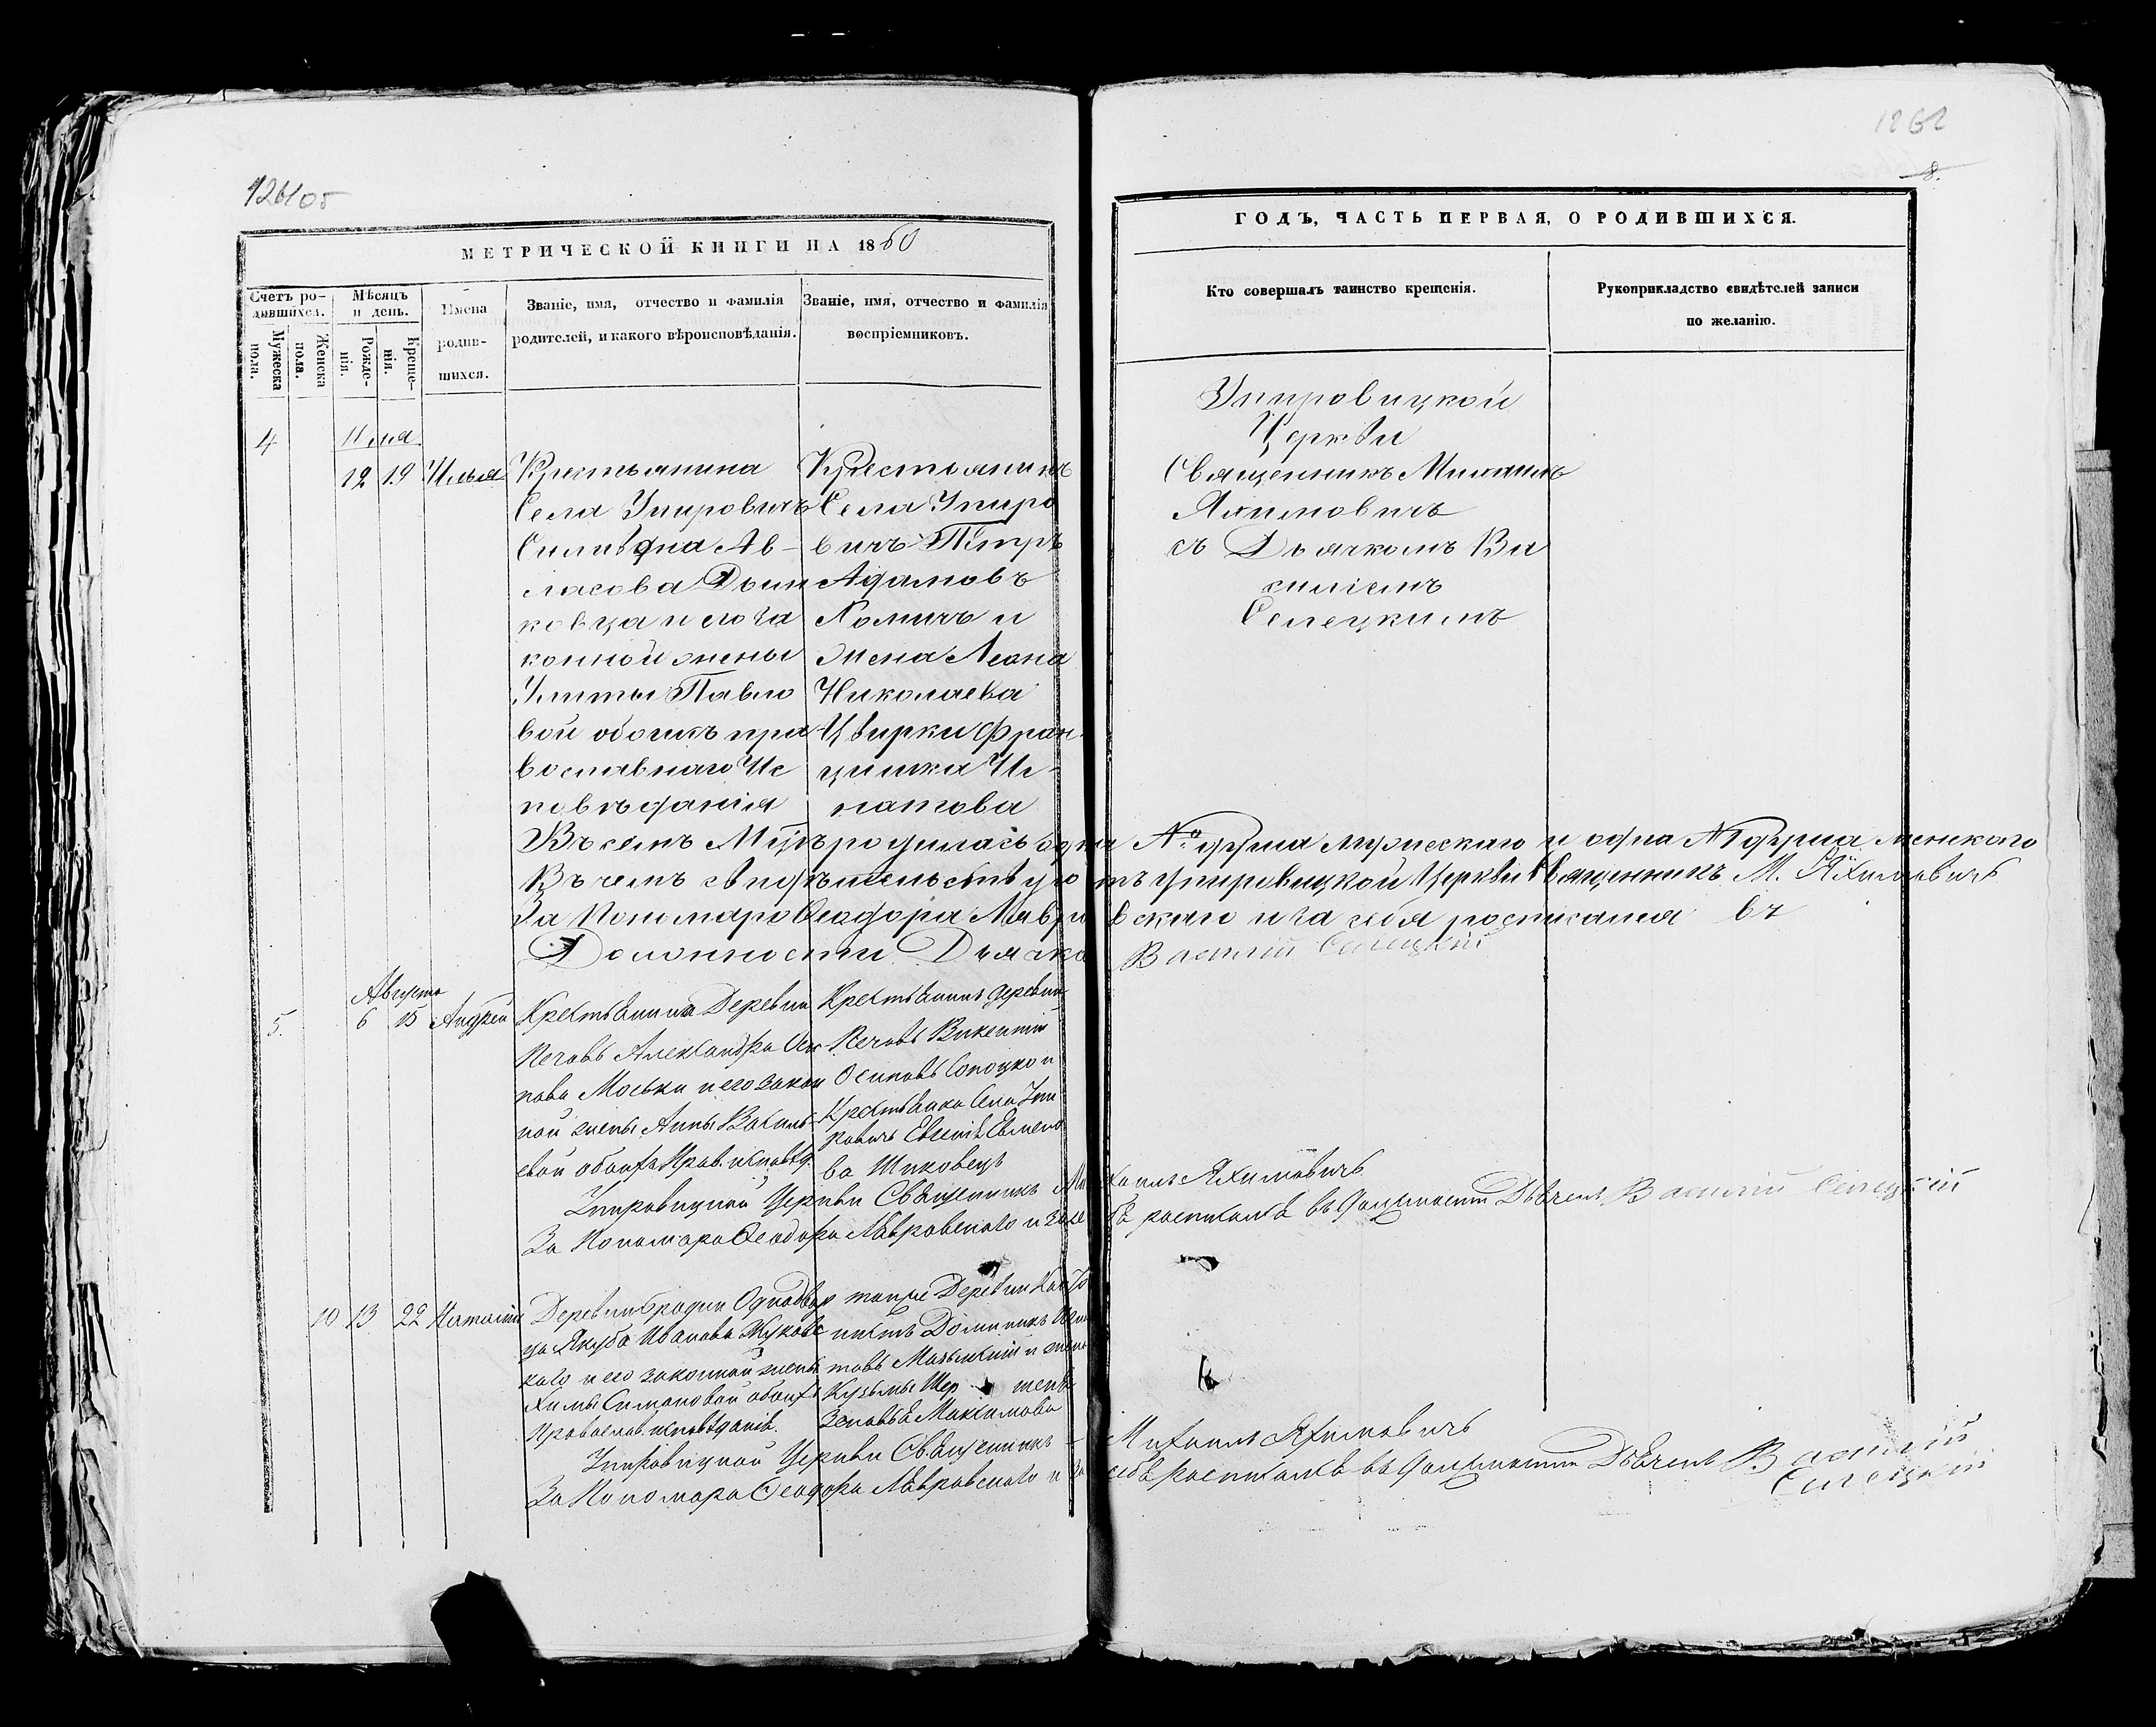 126105
1262
8.
МЕТРИЧЕСКОЙ КНИГИ НА 1860
ГОДЪ, ЧАСТЬ ПЕРВАЯ, О РОДИВШИХСЯ.
Счетъ ро-
дившихся.
Мужеска
пола.
Женска
пола.
Мѣсяцъ
и день.
Рожде-
нія.
Креще-
нія.
Имена
родив-
шихся.
Званіе, имя, отчество и фамилія
родителей, и какого вѣроисповѣданія.
Званіе, имя, отчество и фамилія
воспріемниковъ.
Кто совершалъ таинство крещенія.
Рукоприкладство свидѣтелей записи
по желанію.
4
12 19 Илья
Крестьянина
Села Упировичъ
Ав-
ласова
ковца и его за
конной жены
Улиты Павло
вой обоихъ пра
вославнаго Ис
повѣданія
Крестьянинъ
Села Упиро
вичъ Петръ
Адамовъ
Хомичъ и
жена Леона
Николаева
Цвирки Фран
цишка Иг-
натова
Упировицкой
Церкви
Священникъ Михаилъ
Яхимовичъ
съ Дьячкомъ Ва
силіемъ
Селецкимъ
Въ семъ родилась одна № душа мужескаго и одна № душа женскаго
Въ чемъ свидѣтельствуютъ Упировицкой Церкви Священникъ М. Яхимовичъ
За Пономаря Ѳеодора Лавровскаго и за себя росписался въ
Должности Дьячка Василій Селецкій
Августъ
5. 6 15 Андрей
Крестьянина Деревни
Печовъ Александра Оси
пова Моська и его закон
ной жены Анны Василь-
евой обоихъ Прав. исповѣд.
Крестьянинъ деревни
Печовъ Викентій
Осиповъ Сопоцко и
Крестьянка Села Упи
ровичъ
ва Шиковецъ
Упировицкой Церкви Священникъ Михаилъ Яхимовичъ
За Пономаря Ѳеодора Лавровскаго и за себя росписался въ должности Дьячека Василій Селецкій
10 13 22 Наталія
Деревни Бродни Однодвор
ца Якуба Иванова Жуковс
каго и его законной жены
Химы Симановой обоихъ
Православ. исповѣданія.
Деревни
Доминикъ Игна
товъ и жена
Кузьмы
Зеновья Максимова
Упировицкой Церкви Священникъ – Михаилъ Яхимовичъ
За Пономаря Ѳеодора Лавровскаго и за себя росписался въ должности Дьячекъ Василій
Селецкій